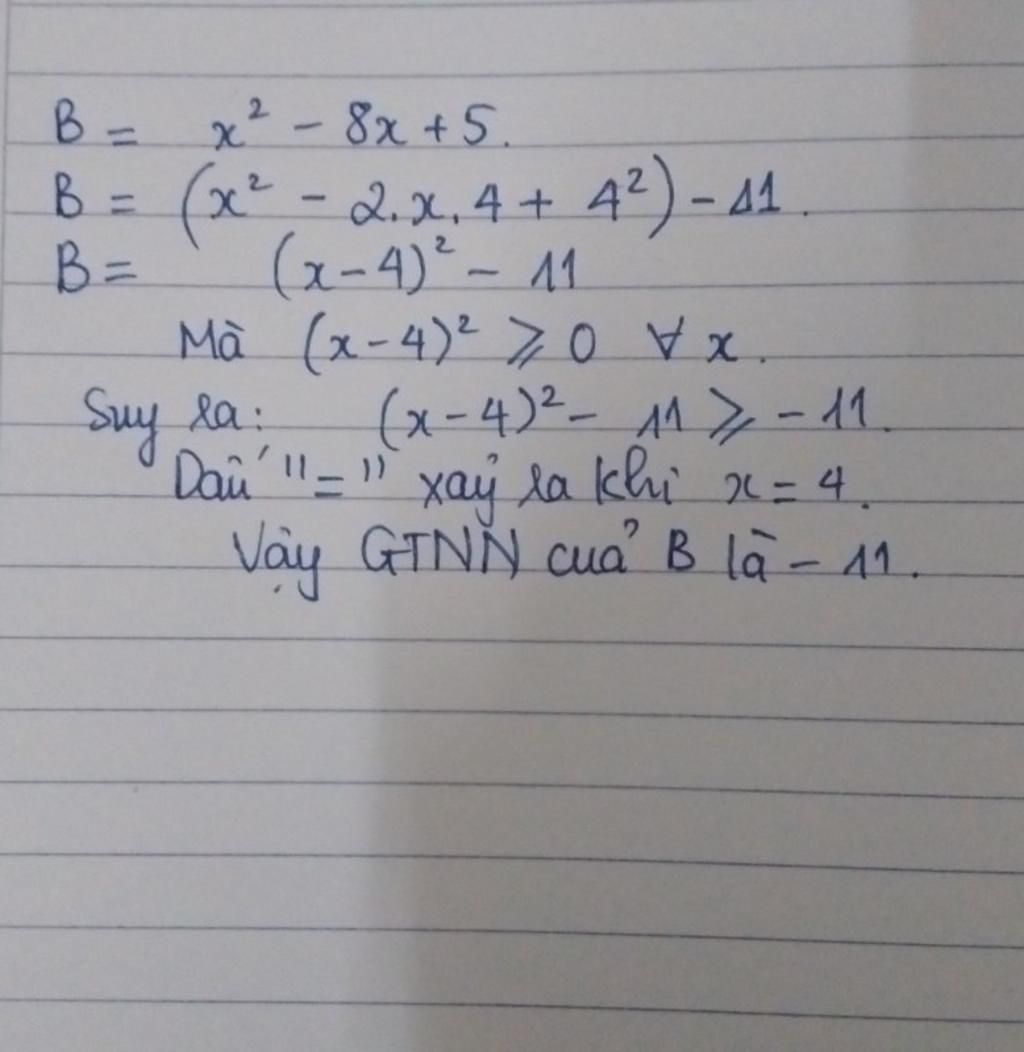 B = x² - 8x + 5.
B = (x² - 2.x.4 + 4²) - 11.
B = (x-4)² - 11
Mà (x-4)² ⩾ 0 ∀ x.
Suy ra: (x-4)² - 11 ⩾ -11.
Dấu "=" xảy ra khi x = 4.
Vậy GTNN của B là - 11.